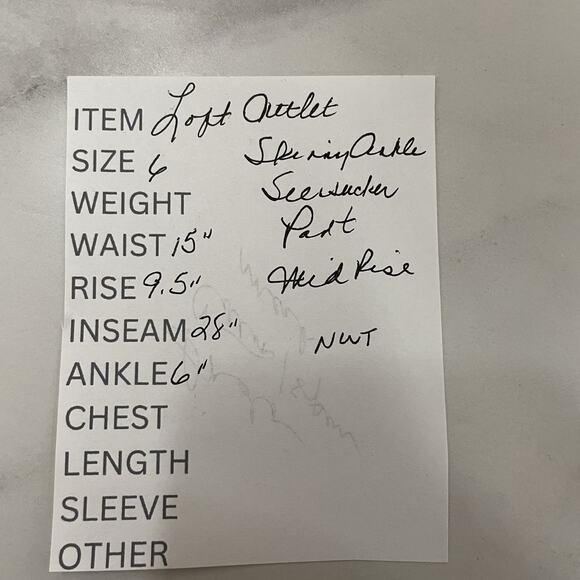 ITEM Loft Outlet
SIZE 6 Skinny Ankle
WEIGHT Seersucker
WAIST 15" Pant
RISE 9.5" Mid Rise
INSEAM 28" NWT
ANKLE 6"
CHEST
LENGTH
SLEEVE
OTHER